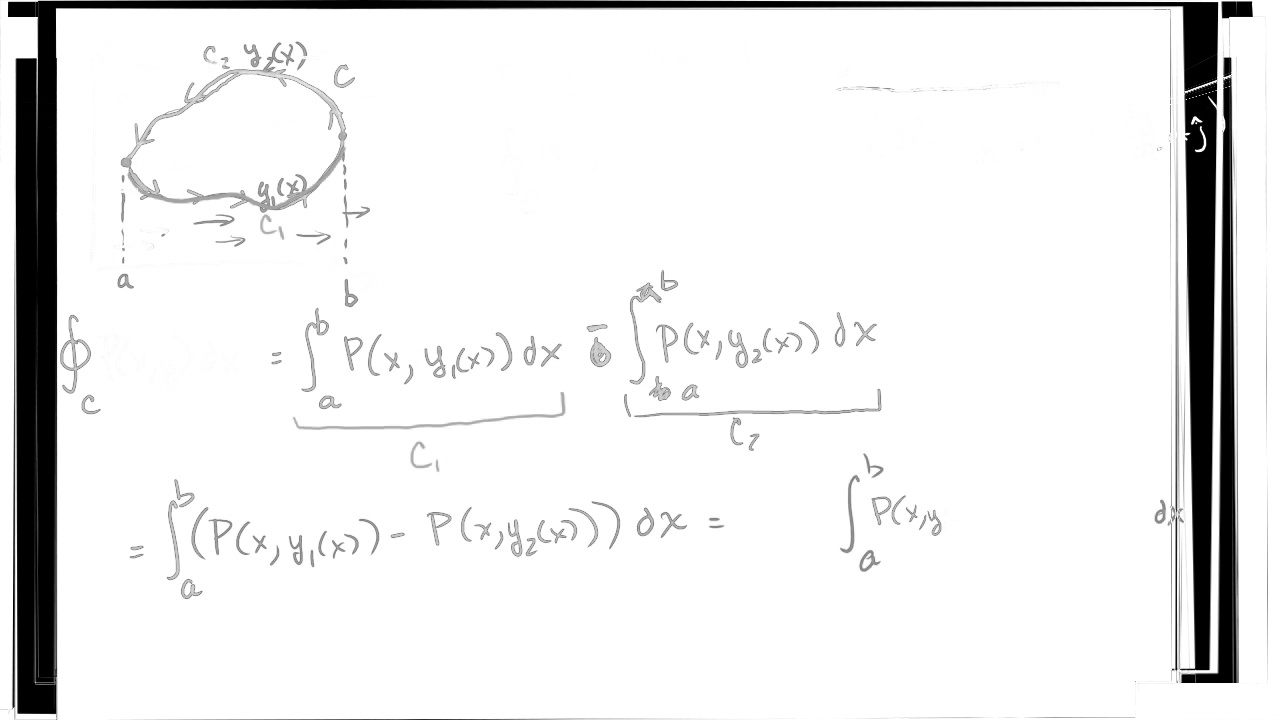 C₂ y₂(x) C
y₁(x)
C₁
a b
∮_C P(x,y) dx = ∫_a^b P(x, y₁(x)) dx - ∫_a^b P(x, y₂(x)) dx
C₁ C₂
= ∫_a^b (P(x, y₁(x)) - P(x, y₂(x))) dx = ∫_a^b P(x, y dx
ĵ)